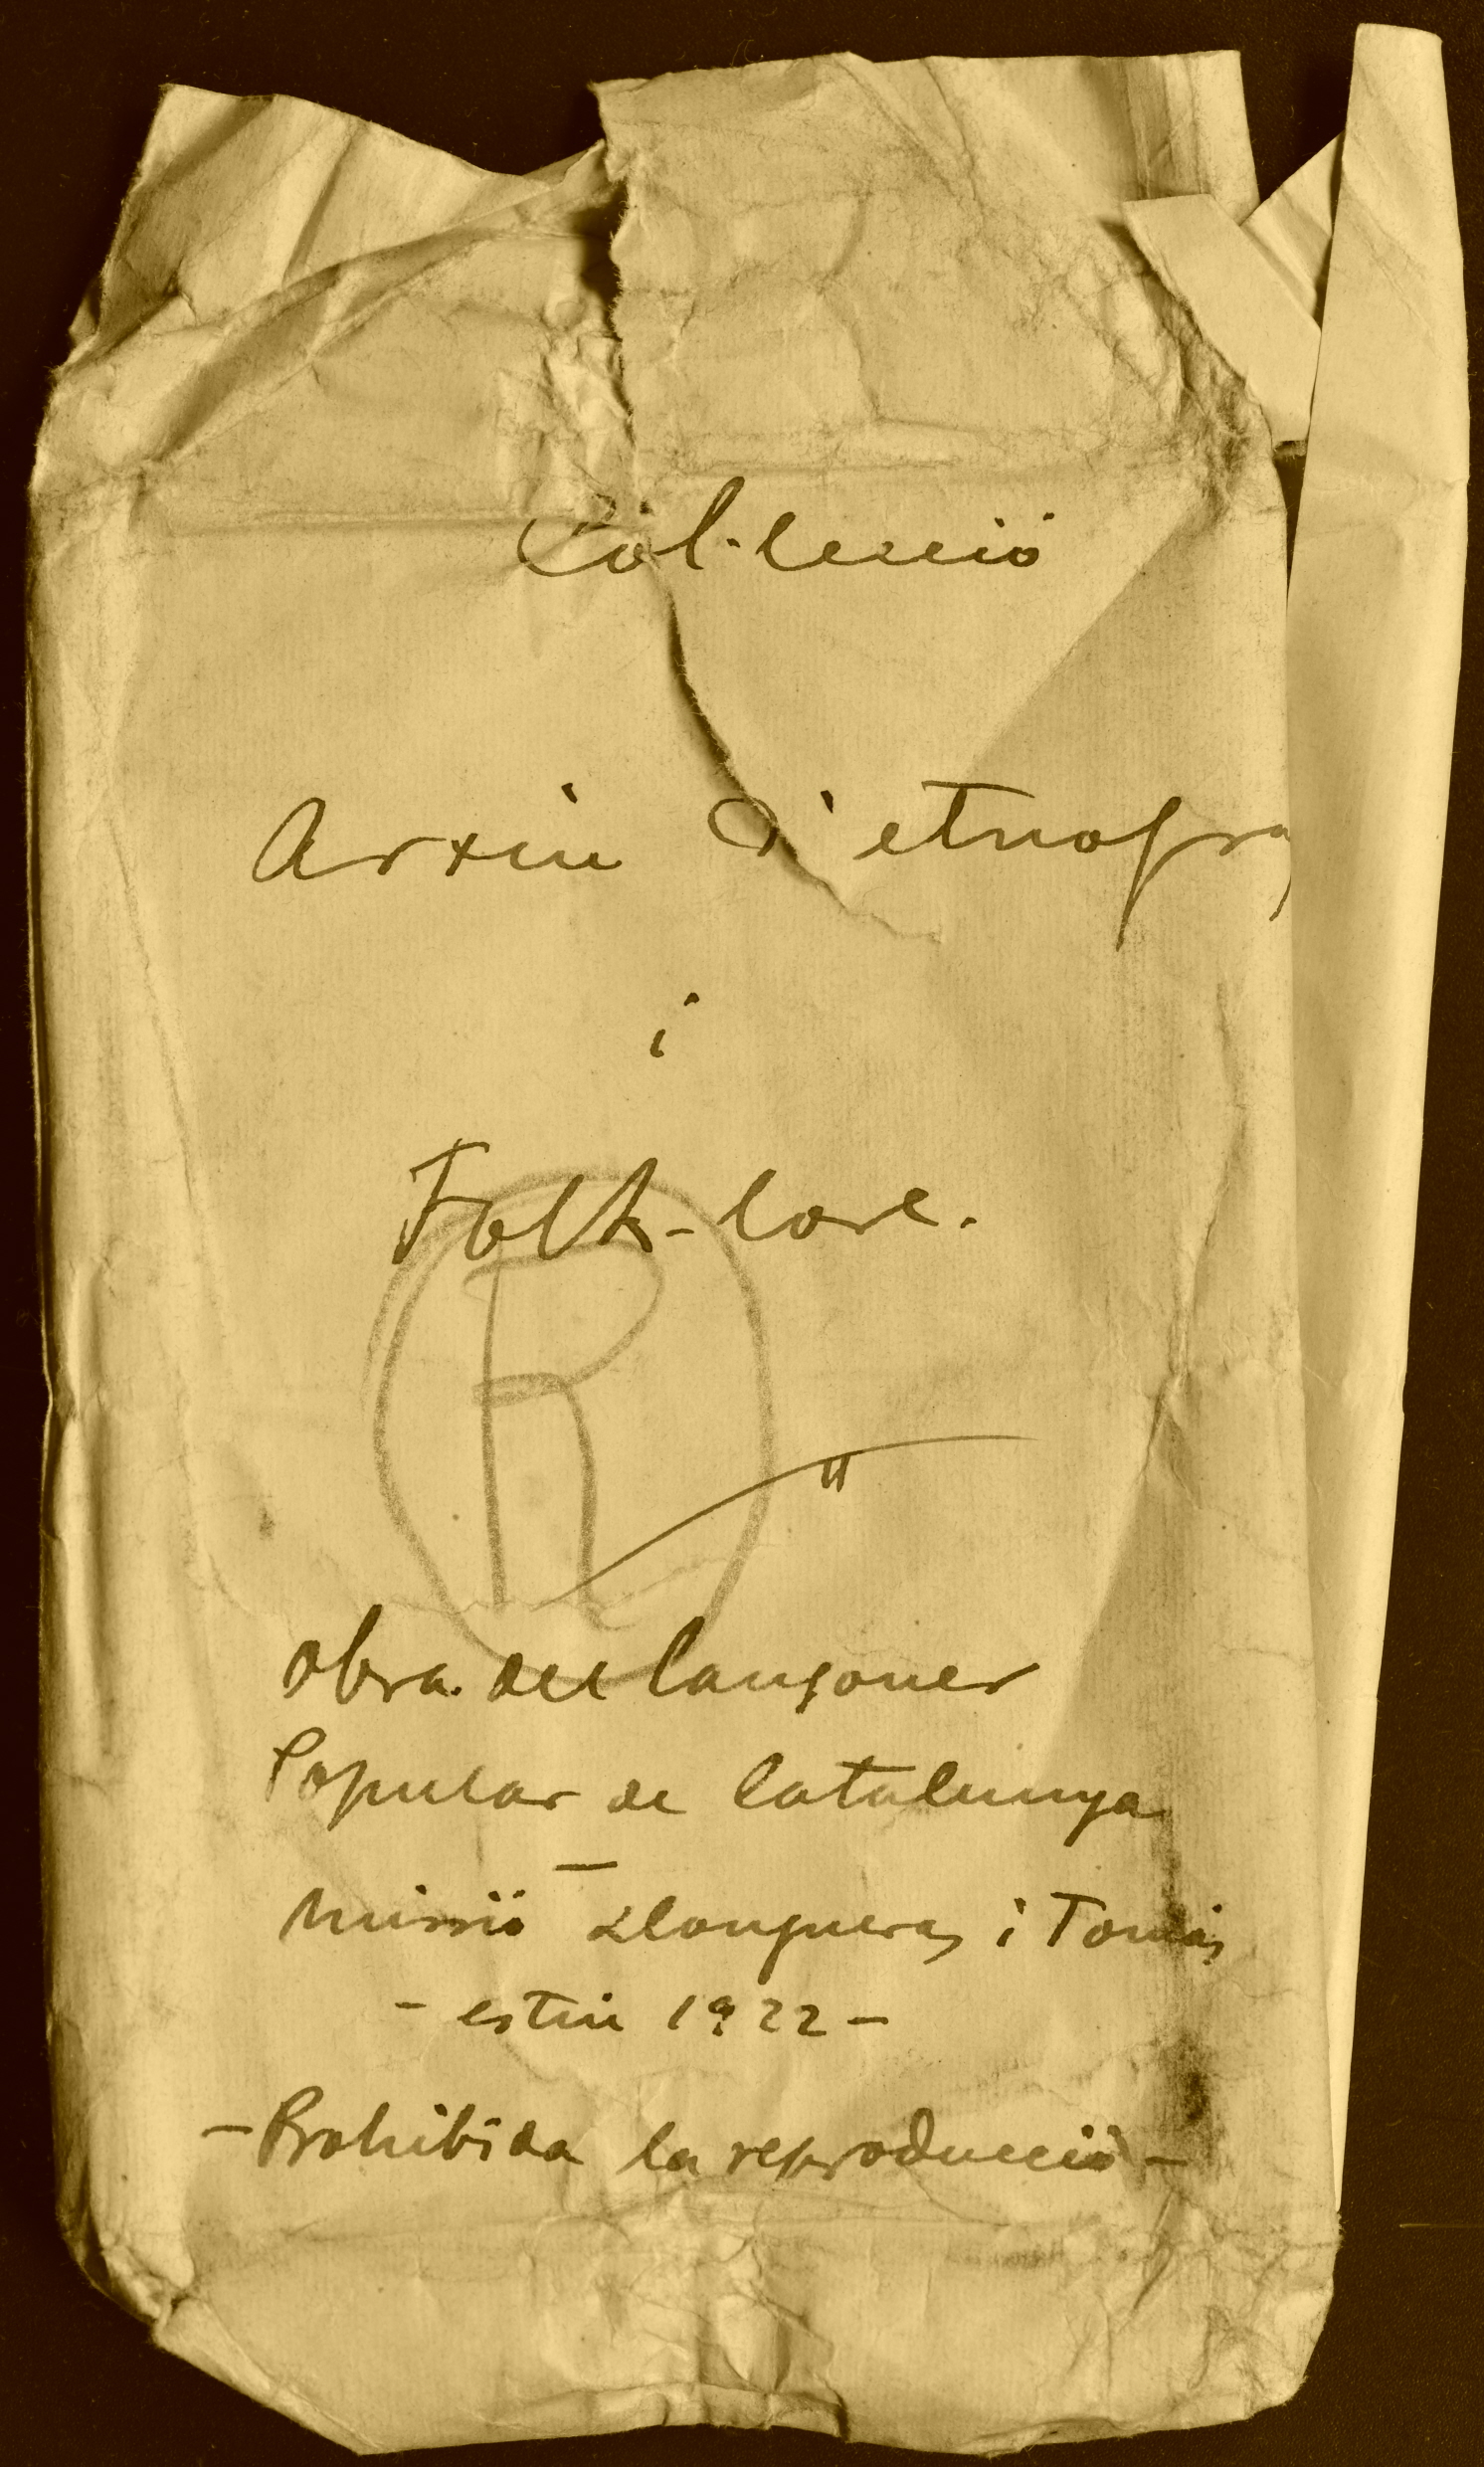 Col·lecció
Arxiu d'etnogra
i
Folk-lore.
R
Obra del Cançoner
Popular de Catalunya
—
Missió Llongueras i Tomàs
- estiu 1922 -
- Prohibida la reproducció -